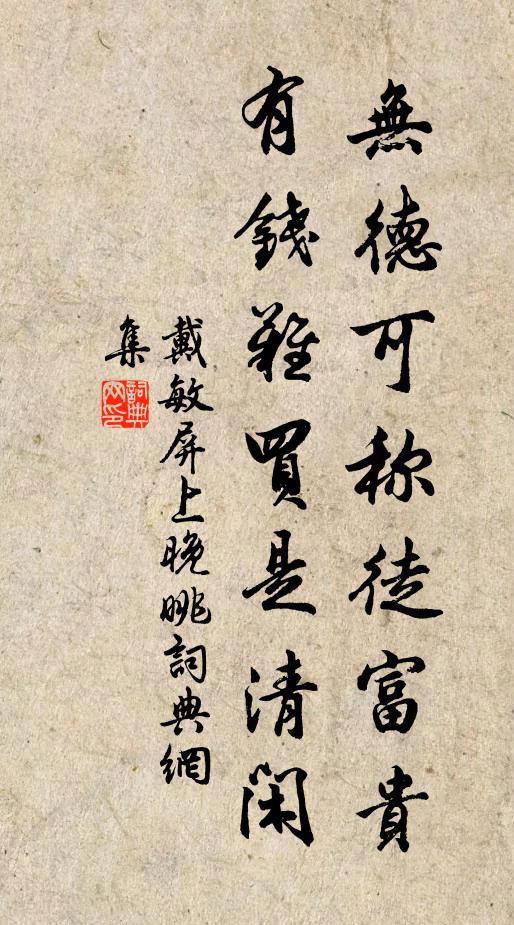 無德可称徒富貴
有錢難買是清閑
戴敏屏上晚眺詞典網
集
詞典網印